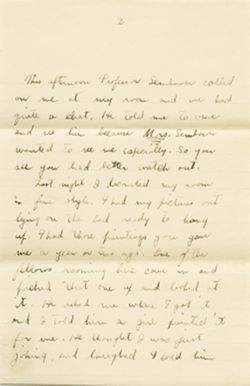 2
This afternoon Professor Sembower called
on me at my room and we had
quite a chat. He told me to come
and see him because Mrs. Sembower
wanted to see me especially. So you
see you had better watch out.
Last night I decorated my room
in fine style. I had my pictures out
lying on the bed ready to hang
up. I had those paintings you gave
me a year or two ago. One of the
fellows rooming here came in and
picked that one up and looked at
it. He asked me where I got it
and I told him a girl painted it
for me. He thought I was just
joking, and laughed I told him